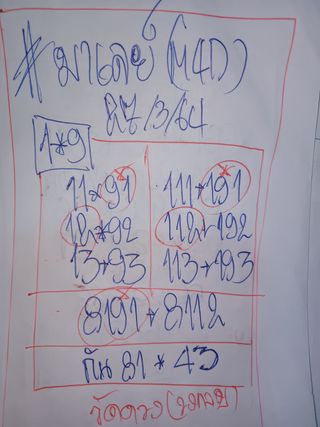 #มาเลย์ (M4D)
27/3/64
1*9
11*91 111*191
12*92 112*192
13*93 113*193
8191*8112
กัน 81 * 43